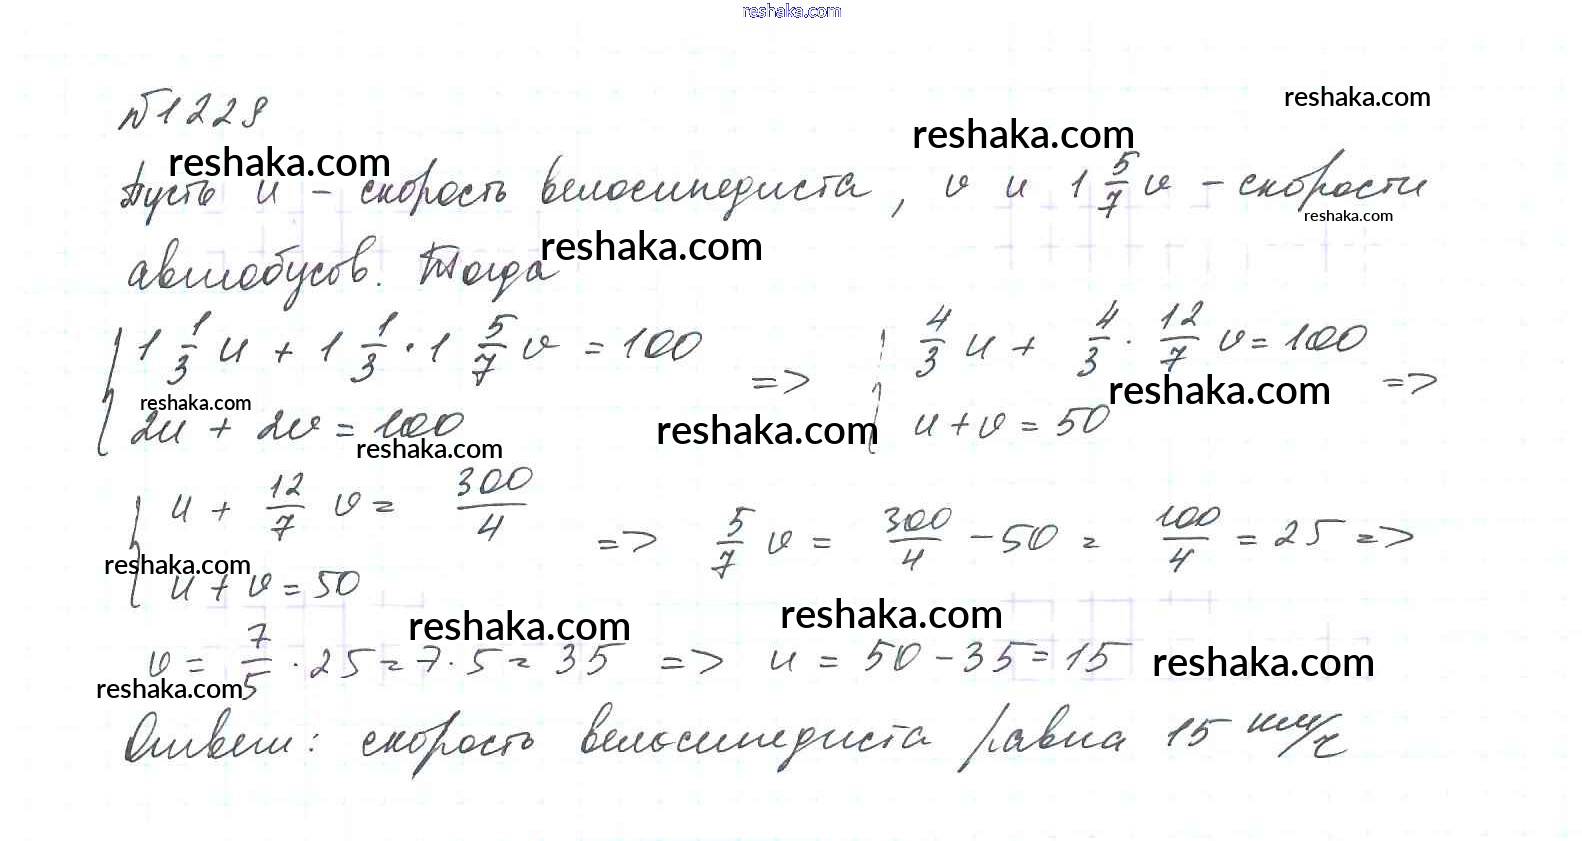 reshaka.com
№1229
reshaka.com
reshaka.com
reshaka.com
Пусть u – скорость велосипедиста, v и 1 5/7 v – скорости
reshaka.com
автобусов. Тогда
reshaka.com
{ 1 1/3 u + 1 1/3 · 1 5/7 v = 100 => { 4/3 u + 4/3 · 12/7 v = 100 =>
reshaka.com
reshaka.com
2u + 2v = 100 u + v = 50
reshaka.com
reshaka.com
{ u + 12/7 v = 300/4 => 5/7 v = 300/4 - 50 = 100/4 = 25 =>
reshaka.com
u + v = 50
reshaka.com
reshaka.com
v = 7/5 · 25 = 7 · 5 = 35 => u = 50 - 35 = 15
reshaka.com
reshaka.com
Ответ: скорость велосипедиста равна 15 км/ч